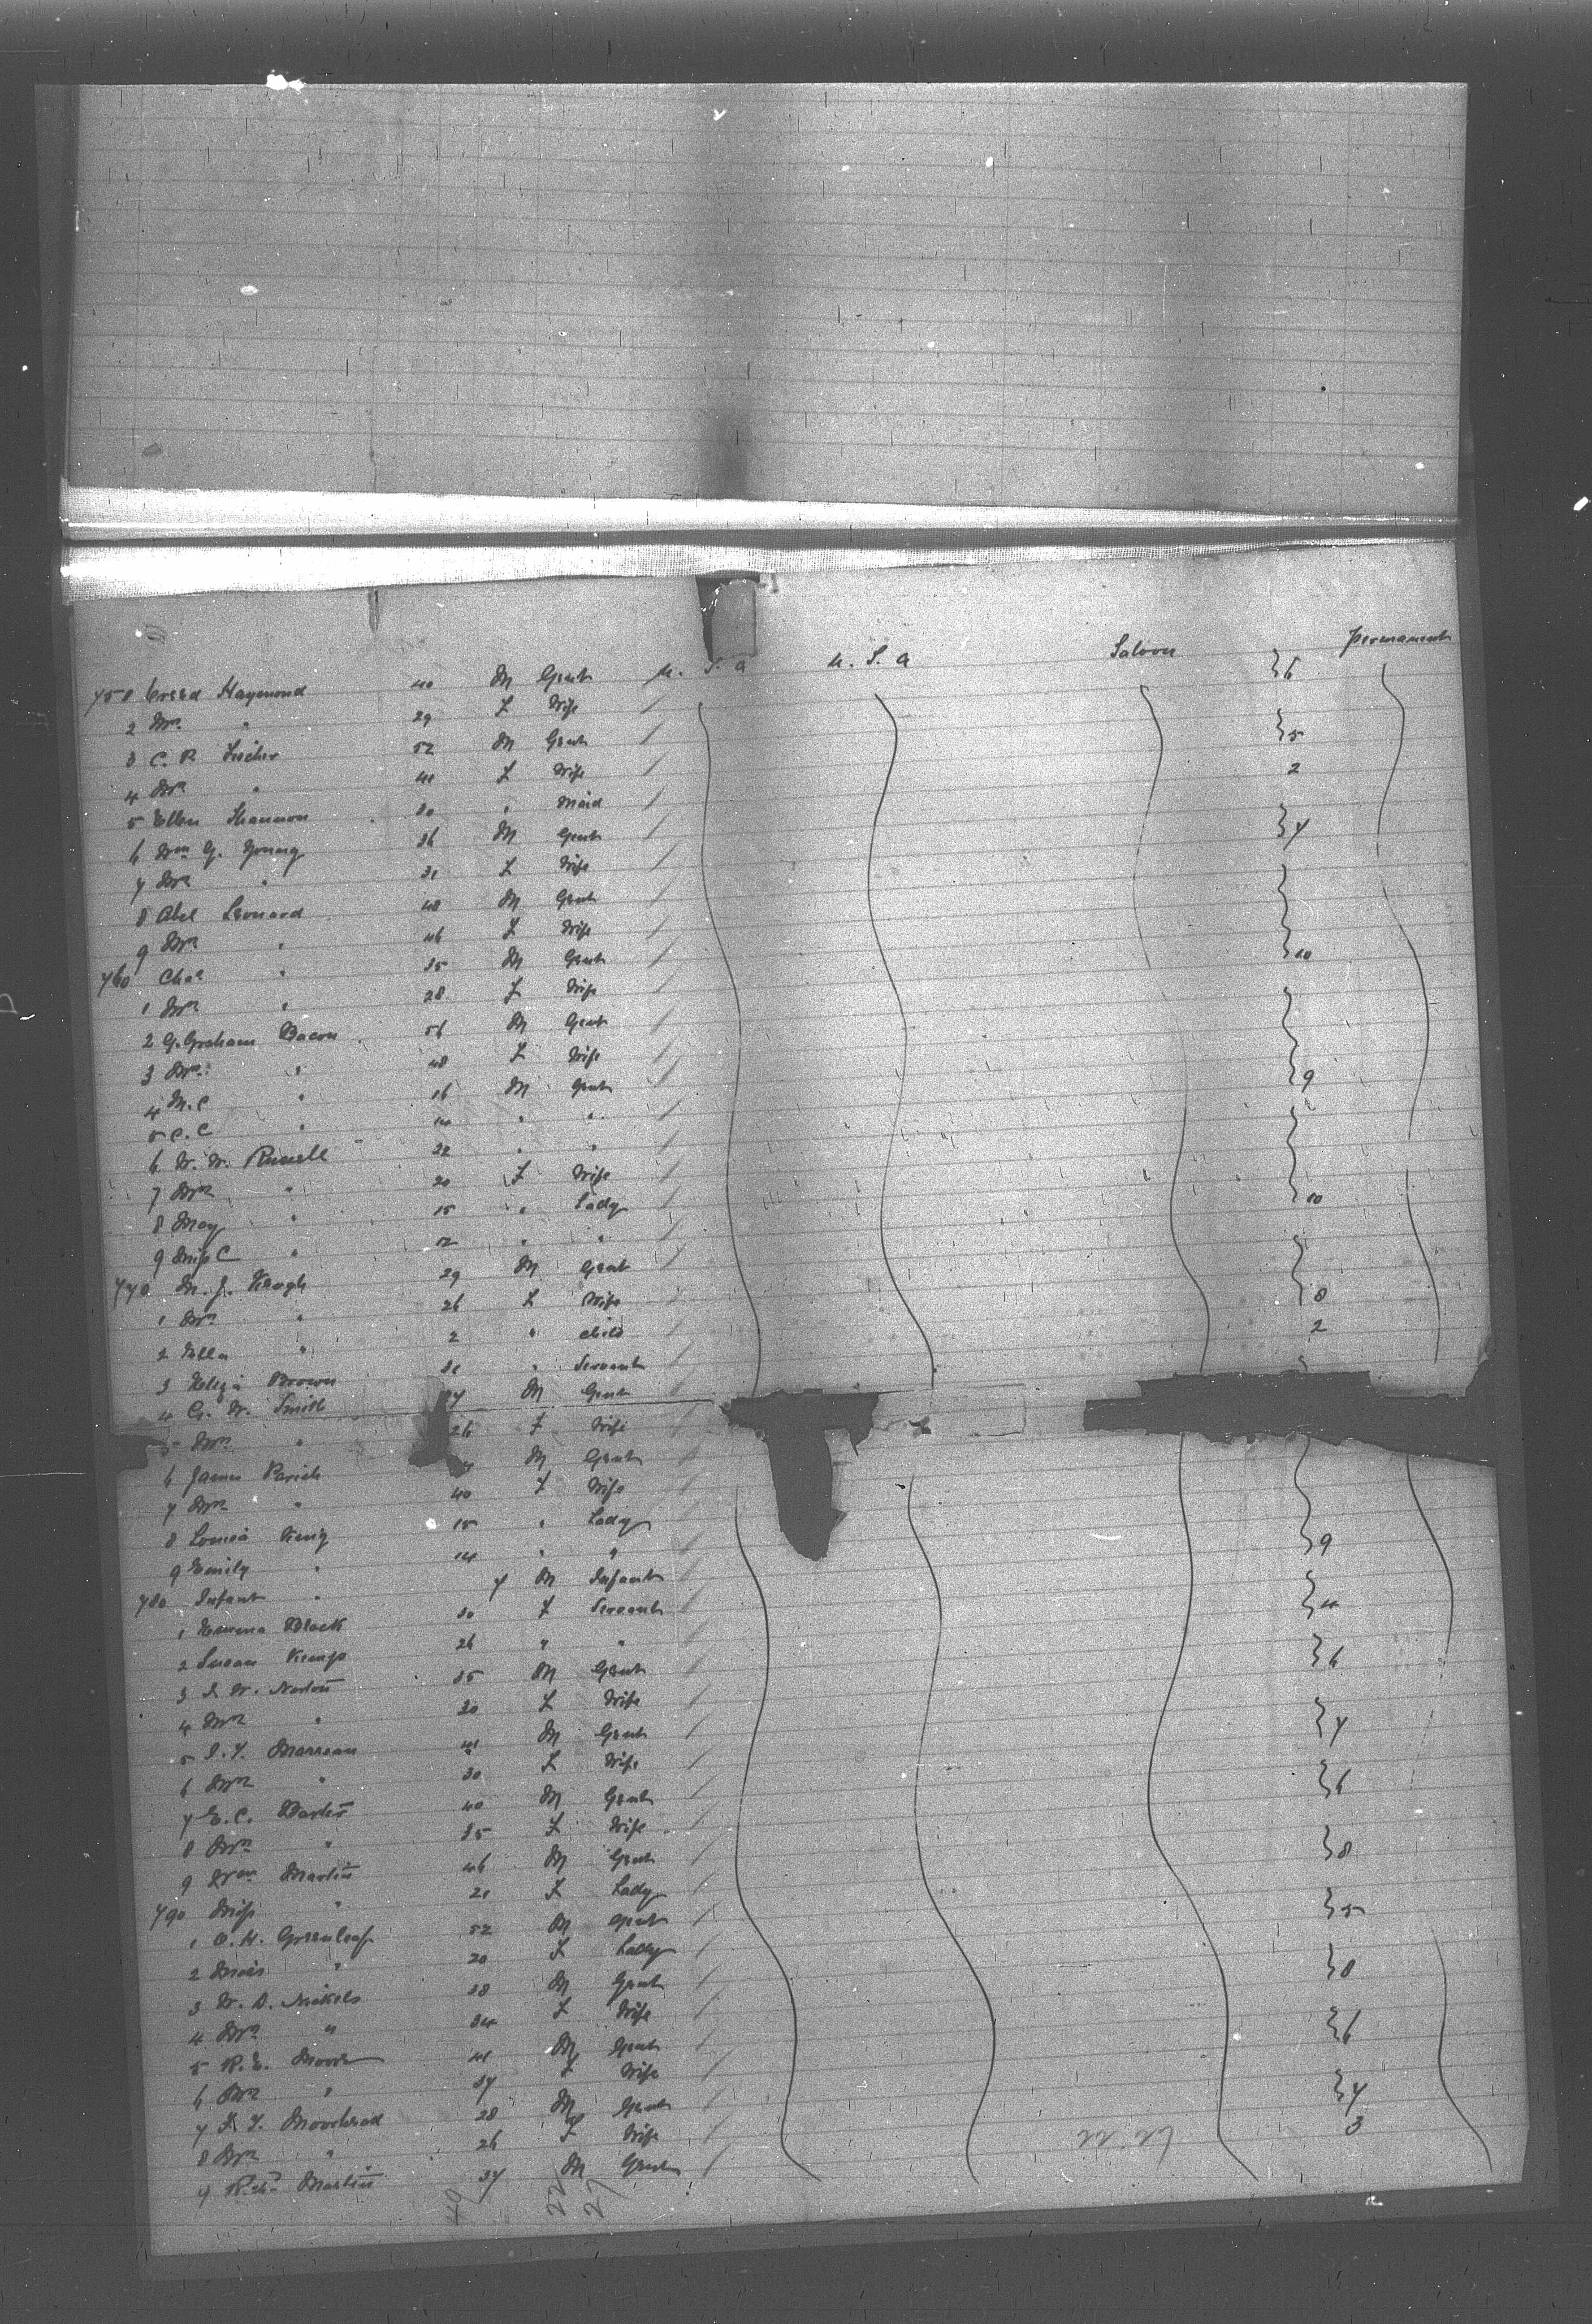 751 Creed Haymond 40 M Gent U. S. A U. S. A Saloon 6 Permanent
2 Mrs " 29 F Wife
3 C. R. 52 M Gent 5
4 Mrs " 41 F Wife
5 Ellen Shannon 30 " Maid 2
6 Wm G. Young 36 M Gent 7
7 Mrs " 31 F Wife
8 Abel Leonard 48 M Gent
9 Mrs " 46 F Wife
760 Chas " 35 M Gent
1 Mrs " 28 F Wife 10
2 G. Graham Bacon 56 M Gent
3 Mrs " 48 F Wife
4 M. C " 16 M Gent
5 C. C " 14 " " 9
6 W. W. Russell 22 " "
7 Mrs " 20 F Wife
8 May " 15 " Lady
9 Miss C " 12 " " 10
770 M. J. Keogh 29 M Gent
1 Mrs " 26 F Wife
2 Ella " 2 " child 8
3 Eliza Brown 31 " Servant 2
4 G. W. Smith M Gent
5 Mrs " 26 F Wife
6 James Parish M Gent
7 Mrs " 40 F Wife
8 Louisa King 15 " Lady
9 Emily " 14 " "
780 Infant " M Infant 9
1 Emma Black 30 F Servant
2 Susan Kemp 26 " " 4
3 W. Norton 35 M Gent 6
4 Mrs " 30 F Wife
5 41 M Gent 7
6 Mrs " 30 F Wife
7 E. C. 40 M Gent 6
8 Mrs " 35 F Wife
9 Wm Martin 46 M Gent 8
790 Miss " 21 F Lady
1 O. H. Greenleaf 52 M Gent 5
2 Miss " 20 F Lady
3 W. D. Nickels 38 M Gent 8
4 Mrs " 34 F Wife
5 R. E. Moore 41 M Gent 6
6 Mrs " 37 F Wife
7 Moorhead 28 M Gent 7
8 Mrs " 26 F Wife
9 Richd Martin 37 M Gent 3
49 22 27